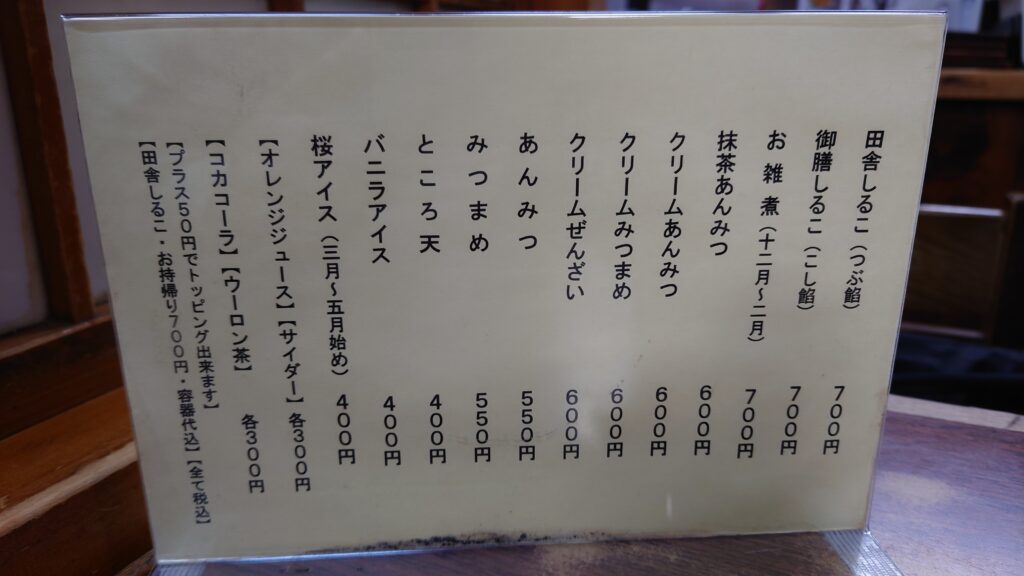 田舎しるこ（つぶ餡） 700円
御膳しるこ（こし餡） 700円
お雑煮（十二月～二月） 700円
抹茶あんみつ 600円
クリームあんみつ 600円
クリームみつまめ 600円
クリームぜんざい 600円
あんみつ 550円
みつまめ 550円
ところ天 400円
バニラアイス 400円
桜アイス（三月～五月始め） 400円
【オレンジジュース】【サイダー】各300円
【コカコーラ】【ウーロン茶】 各300円
【プラス50円でトッピング出来ます】
【田舎しるこ・お持帰り700円・容器代込】【全て税込】